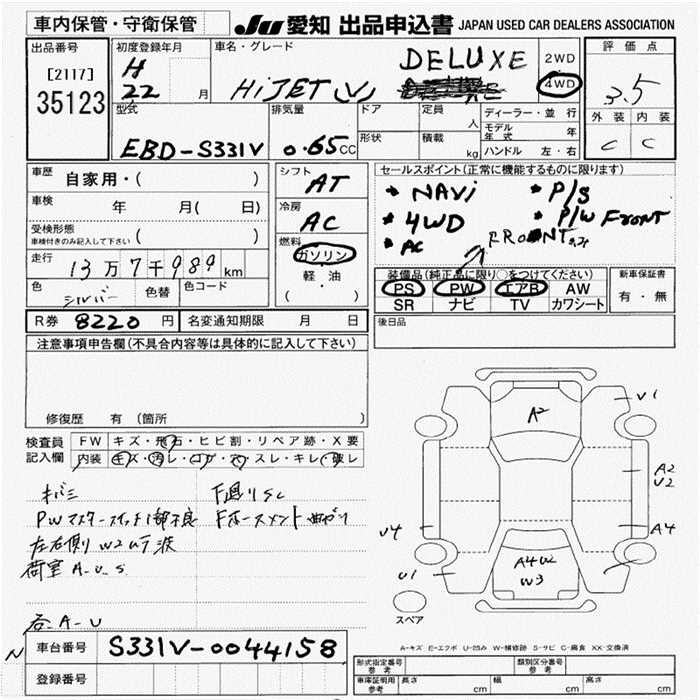 車内保管・守衛保管
JU 愛知 出品申込書 JAPAN USED CAR DEALERS ASSOCIATION
出品番号
[2117]
35123
初度登録年月
H
22 月
車名・グレード
HiJET (V)
DELUXE
2WD
4WD
評価点
3.5
外装 内装
C C
型式
EBD-S331V
排気量
0.65 CC
ドア
形状
定員
人
積載
kg
ディーラー・並行
モデル年式 年
ハンドル 左・右
車歴
自家用・( )
車検
年 月( 日)
受検形態
車検付きのみ記入して下さい ( )
走行
13万7千989 km
色
シルバー
色替
色コード
シフト
AT
冷房
AC
燃料
ガソリン
軽・油
( )
セールスポイント(正常に機能するものに限ります)
NAVi
P/S
4WD
P/W FRONT
AC
FRONT
装備品(純正品に限り○をつけてください)
PS PW エアB AW
SR ナビ TV カワシート
新車保証書
有・無
R券 8220 円
名変通知期限 月 日
後日品
注意事項申告欄(不具合内容等は具体的に記入して下さい)
修復歴 有 (箇所 )
検査員
記入欄
FW キズ・飛石・ヒビ割・リペア跡・X要
内装 キズ・汚レ・コゲ・穴・スレ・キレ・破レ
キバミ
PWマスタースイッチ1部不良
左右側 W2ムラ波
荷室 A.U.S
各A-U
F廻りSC
Fホースメント曲がり
A2
V1
A2
U2
A4
U4
U1
A4W2
W3
スペア
A-キズ E-エクボ U-凹み W-補修跡 S-サビ C-腐食 XX-交換済
N
車台番号 S331V-0044158
登録番号
形式指定番号
参考
類別区分番号
参考
車庫証明用
参考
長さ cm 幅 cm 高さ cm